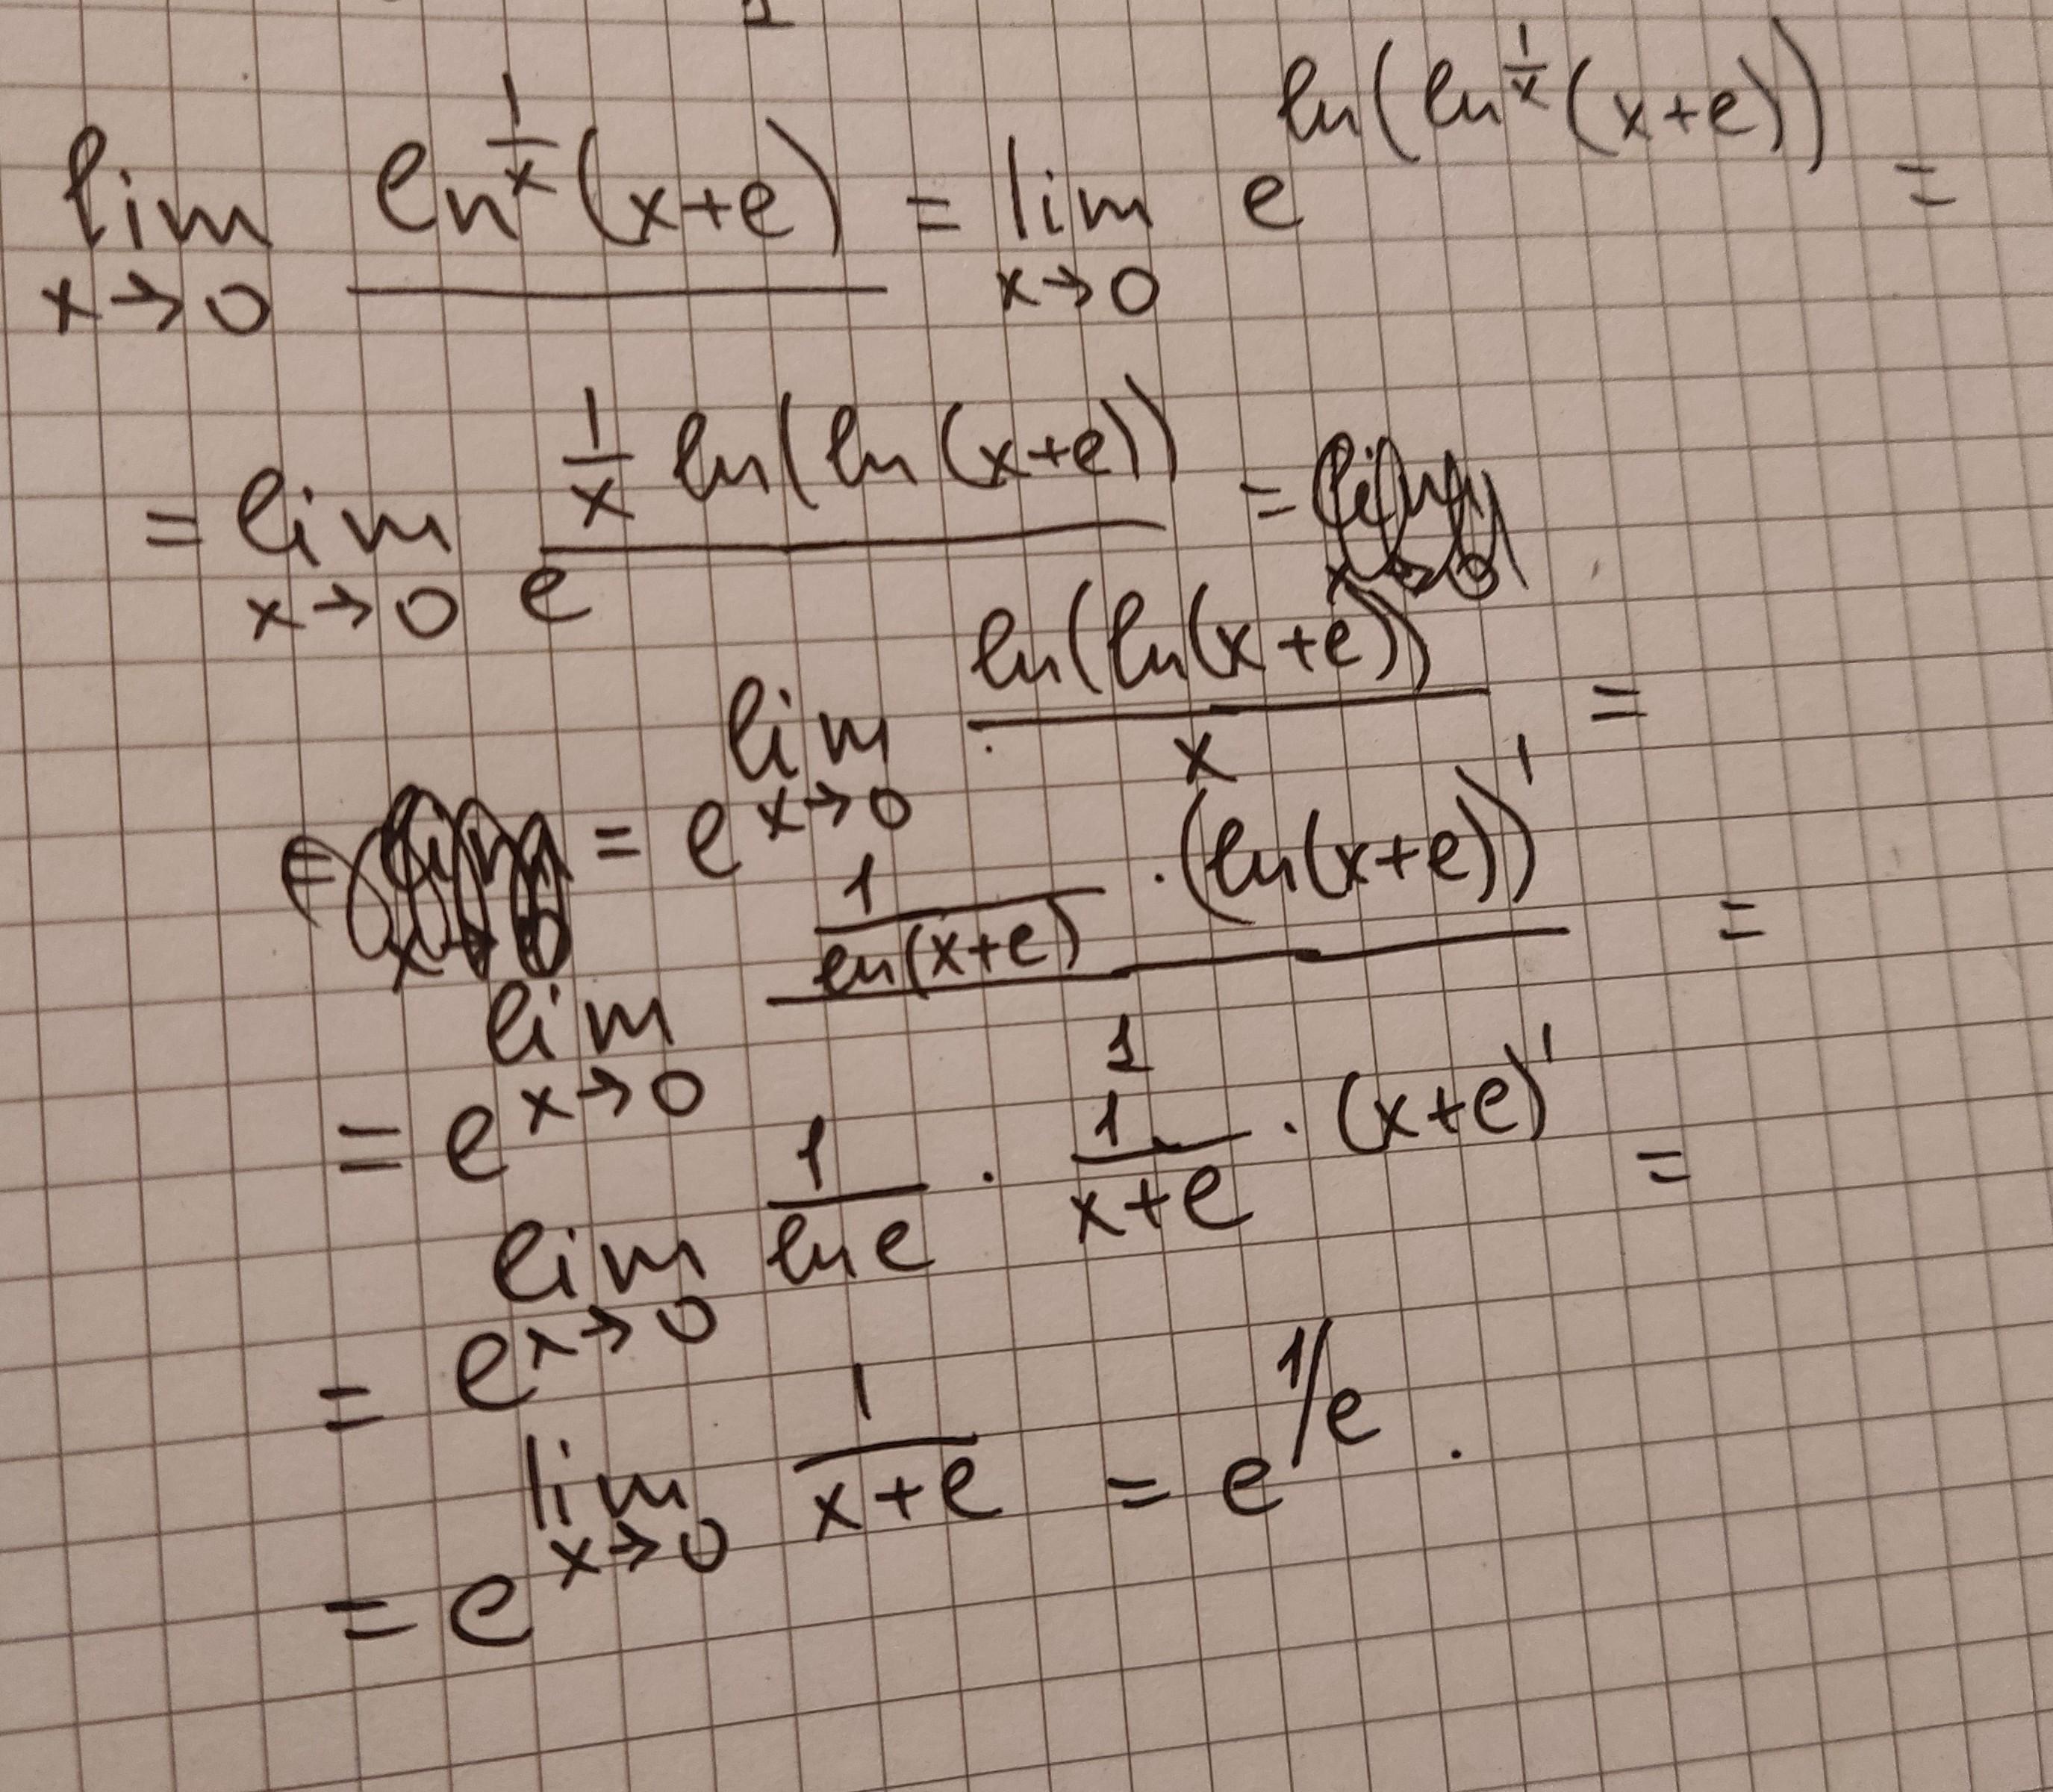 lim x→0 ln^{1/x}(x+e) = lim x→0 e^{ln(ln^{1/x}(x+e))} =
= lim x→0 e^{1/x ln(ln(x+e))} =
= e^{lim x→0 ln(ln(x+e))/x} =
= e^{lim x→0 (1/ln(x+e) · (ln(x+e))')/1} =
= e^{lim x→0 1/ln e · 1/(x+e) · (x+e)'} =
= e^{lim x→0 1/(x+e)} = e^{1/e}.